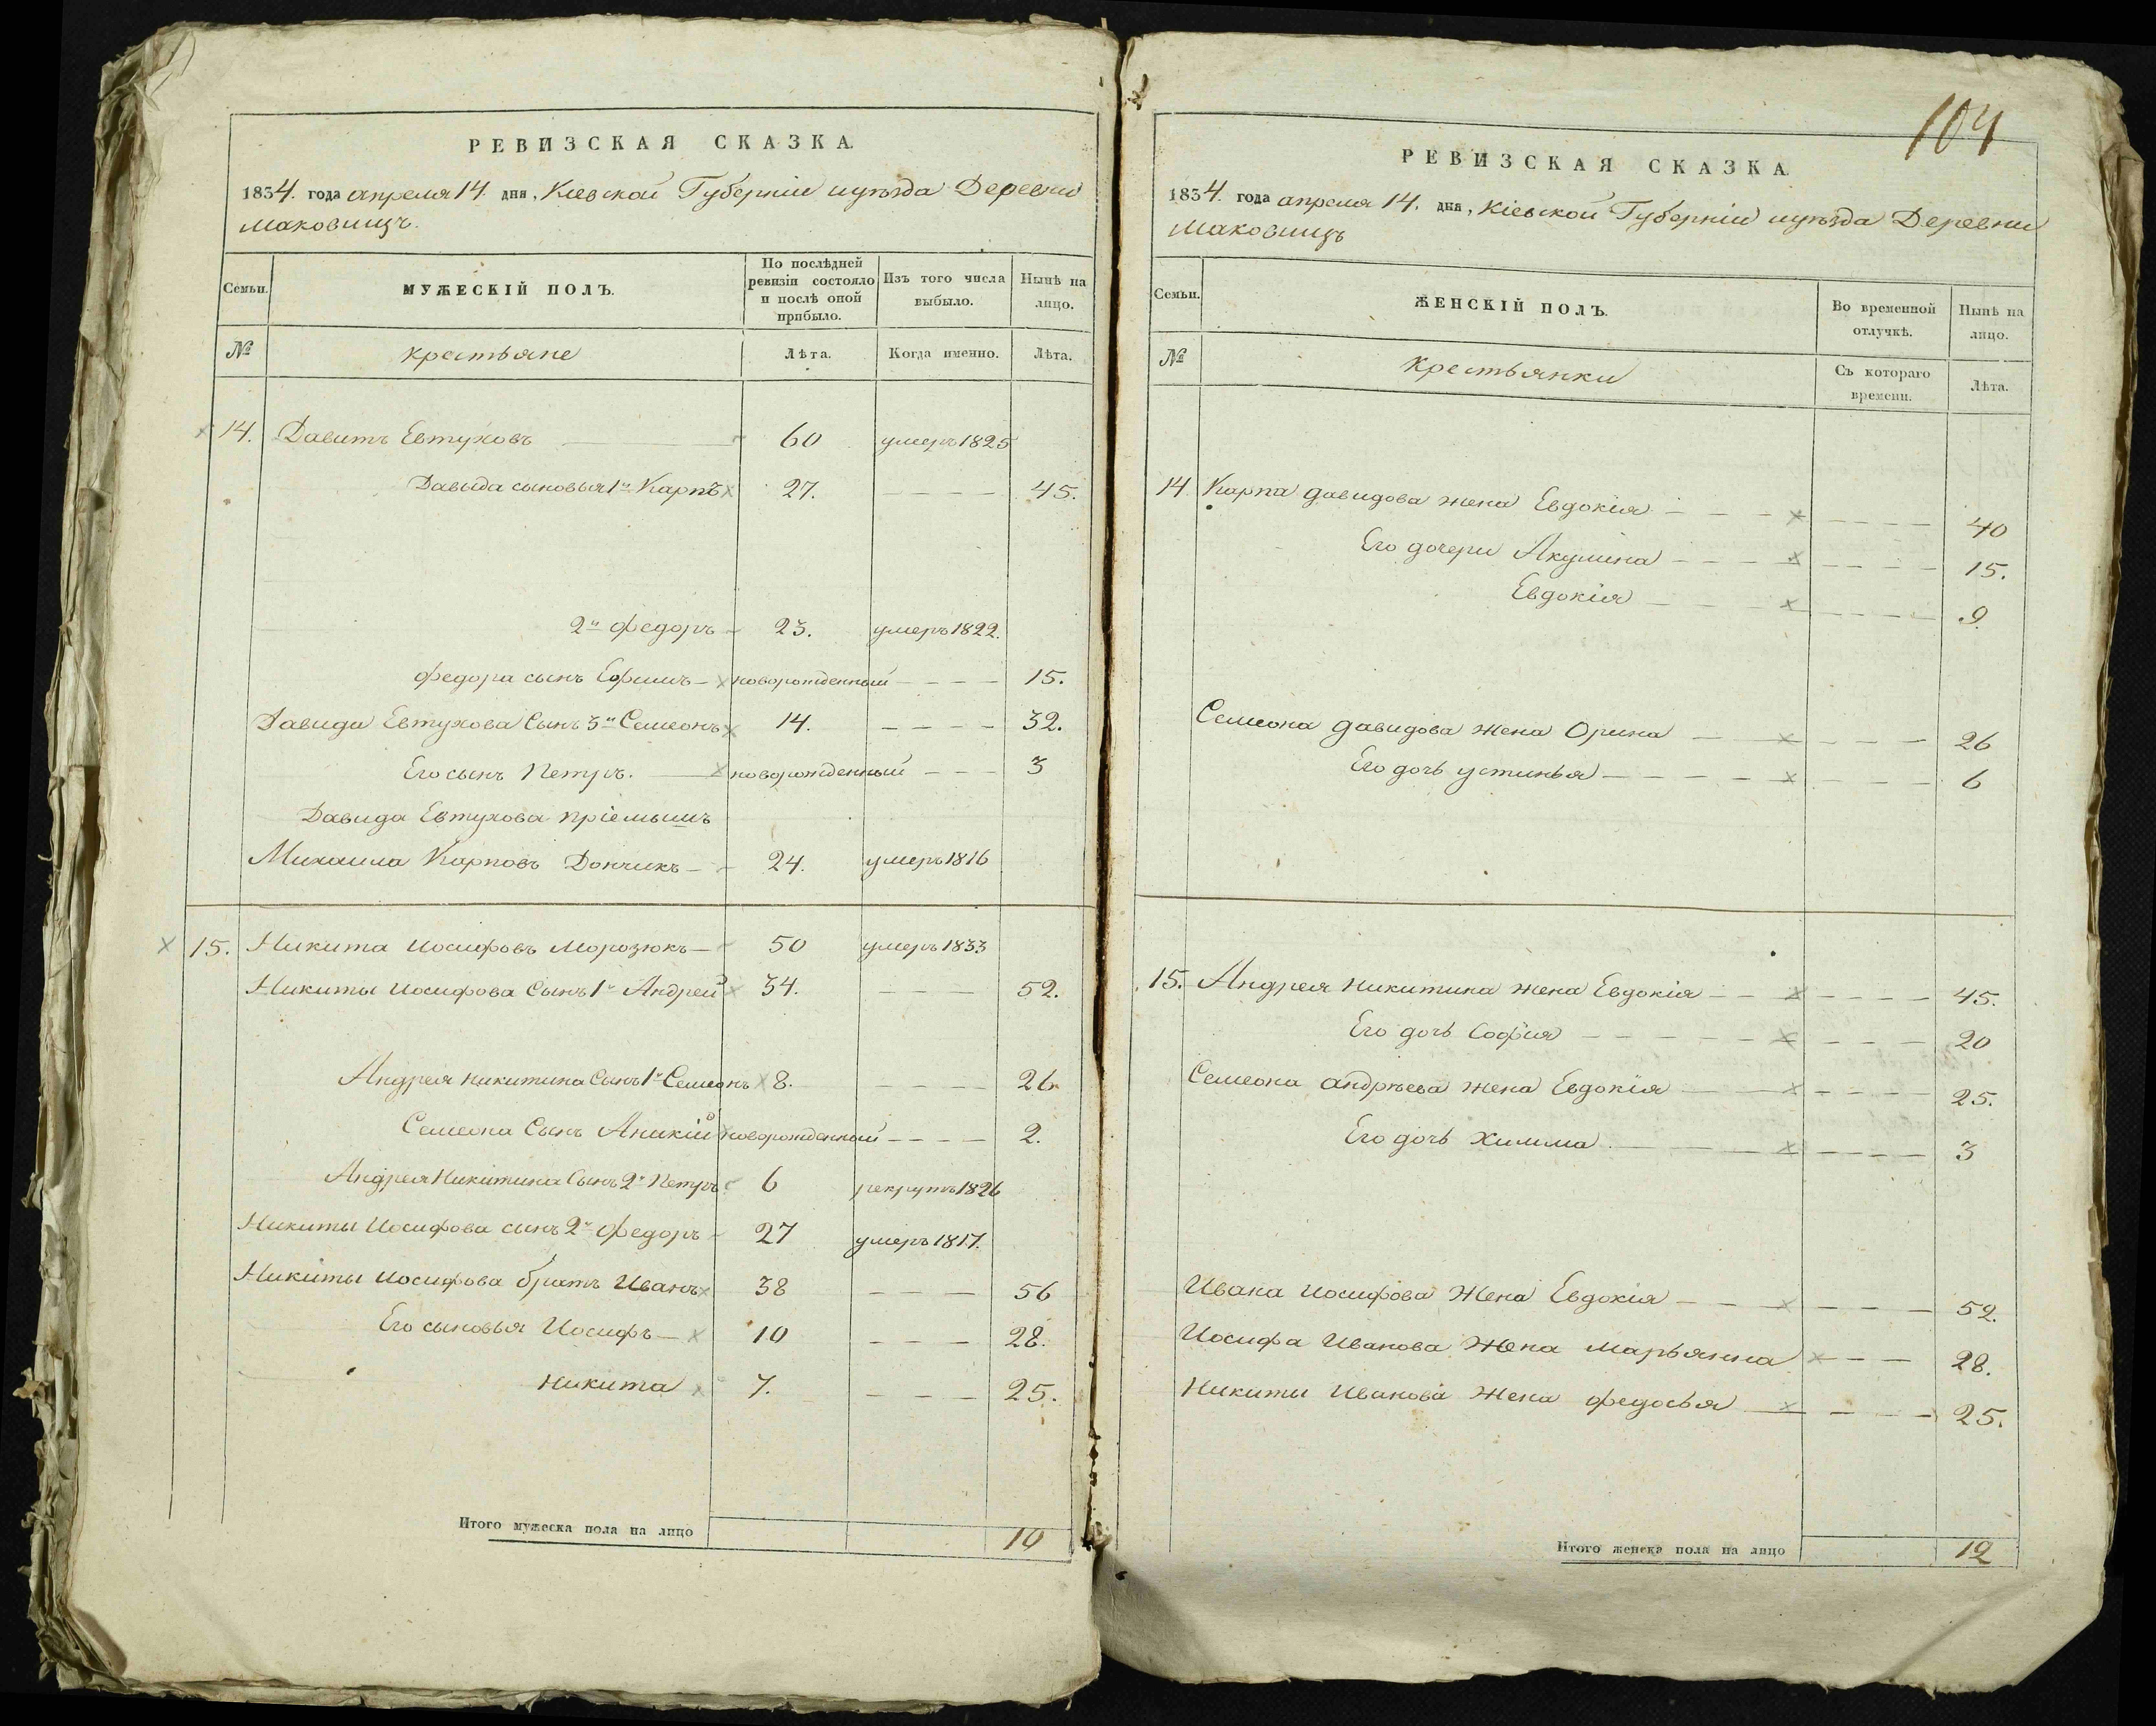 РЕВИЗСКАЯ СКАЗКА.
1834. года апреля 14. дня, Кіевской Губерніи иуѣзда Деревни
маковищъ.
Семьи.
МУЖЕСКІЙ ПОЛЪ.
По послѣдней ревизіи состояло и послѣ оной прибыло.
Изъ того числа выбыло.
Нынѣ на лицо.
№
крестьяне
Лѣта.
Когда именно.
Лѣта.
14. Давитъ Евтуховъ 60 умеръ 1825
Давида сыновья 1й Карпъ 27. 45.
2й федоръ 23. умеръ 1822.
федора сынъ Ефимъ новорожденный 15.
Давида Евтухова Сынъ 3й Семеонъ 14. 32.
Его сынъ Петръ. новорожденный 3
Давида Евтухова пріемышъ
Михаила Карповъ Дончикъ 24. умеръ 1816
15. Никита иосифовъ Морозюкъ 50 умеръ 1833
Никиты иосифова Сынъ 1й Андрей 34. 52.
Андрея никитина Сынъ 1й Семеонъ 8. 26.
Семеона Сынъ Аникій новорожденный 2.
Андрея Никитина Сынъ 2й Петръ 6 рекрутъ 1826
Никиты Иосифова сынъ 2й федоръ 27 умеръ 1817.
Никиты Иосифова братъ Иванъ 38 56
Его сыновья Иосифъ 10 28.
Никита 7. 25.
Итого мужеска пола на лицо 10
104
РЕВИЗСКАЯ СКАЗКА.
1834. года апреля 14. дня, Кіевской Губерніи иуѣзда Деревни
Маковищъ
Семьи.
ЖЕНСКІЙ ПОЛЪ.
Во временной отлучкѣ.
Нынѣ на лицо.
№
Крестьянки
Съ котораго времени.
Лѣта.
14 Карпа давидова жена Евдокія 40
Его дочери Акулина 15.
Евдокія 9.
Семеона давидова жена Орина 26
Его дочь устинья 6
15. Андрея никитина жена Евдокія 45.
Его дочь Софія 20
Семеона андрѣева жена Евдокія 25.
Его дочь Химма 3
Ивана иосифова Жена Евдокія 52.
Иосифа Иванова Жена Марьянна 28.
Никиты Иванова Жена федосья 25.
Итого женска пола на лицо 12